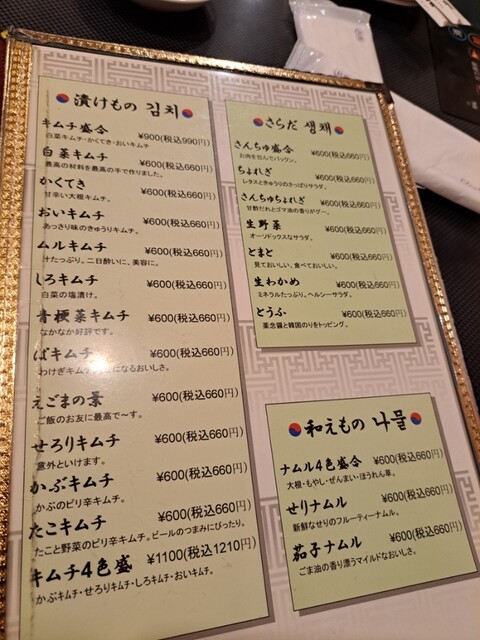 漬けもの 김치
キムチ盛合 ¥900(税込990円)
白菜キムチ・かくてき・おいキムチ
白菜キムチ ¥600(税込660円)
最高の材料を最高の手で作りました。
かくてき ¥600(税込660円)
甘辛い大根キムチ。
おいキムチ ¥600(税込660円)
あっさり味のきゅうりキムチ。
ムルキムチ ¥600(税込660円)
汁たっぷり。二日酔いに、美容に。
しろキムチ ¥600(税込660円)
白菜の塩漬け。
青梗菜キムチ ¥600(税込660円)
なかなか好評です。
ぱキムチ ¥600(税込660円)
わけぎキムチ になるおいしさ。
えごまの葉 ¥600(税込660円)
ご飯のお友に最高で〜す。
せろりキムチ ¥600(税込660円)
意外といけます。
かぶキムチ ¥600(税込660円)
かぶのピリ辛キムチ。
たこキムチ ¥600(税込660円)
たこと野菜のピリ辛キムチ。ビールのつまみにぴったり。
キムチ4色盛 ¥1100(税込1210円)
かぶキムチ・せろりキムチ・しろキムチ・おいキムチ。
さらだ 생채
さんちゅ盛合 ¥600(税込660円)
お肉を包んでパックン。
ちょれぎ ¥600(税込660円)
レタスときゅうりのさっぱりサラダ。
さんちゅちょれぎ ¥600(税込660円)
甘酢だれとゴマ油の香りがグー。
生野菜 ¥600(税込660円)
オーソドックスなサラダ。
とまと ¥600(税込660円)
見ておいしい、食べておいしい。
生わかめ ¥600(税込660円)
ミネラルたっぷり。ヘルシーサラダ。
とうふ ¥600(税込660円)
薬念醤と韓国のりをトッピング。
和えもの 나물
ナムル4色盛合 ¥600(税込660円)
大根・もやし・ぜんまい・ほうれん草。
せりナムル ¥600(税込660円)
新鮮なせりのフルーティーナムル。
茄子ナムル ¥600(税込660円)
ごま油の香り漂うマイルドなおいしさ。